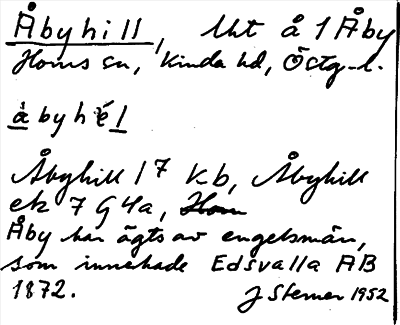 Åbyhill, lht å 1 Åby
Horns sn, Kinda hd, Östg. l.
å̀byhél
Åbyhill 1⁷ Kb, Åbyhill
ek 7 G 4a, Horn
Åby har ägts av engelsmän,
som innehade Edsvalla AB
1872. J Sterner 1952